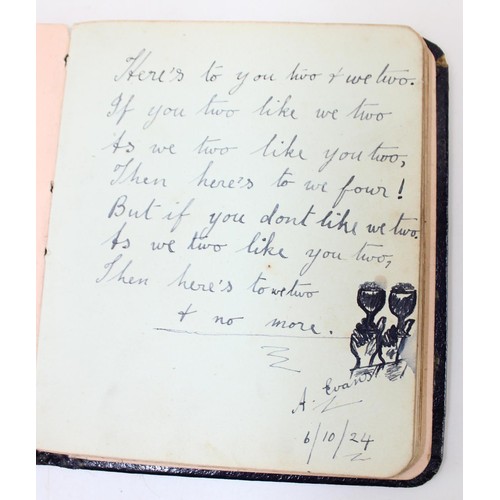 Here's to you two & we two.
If you two like we two
As we two like you two,
Then here's to we four!
But if you dont like we two.
As we two like you two,
Then here's to we two
& no more.
A. Evans
6/10/24